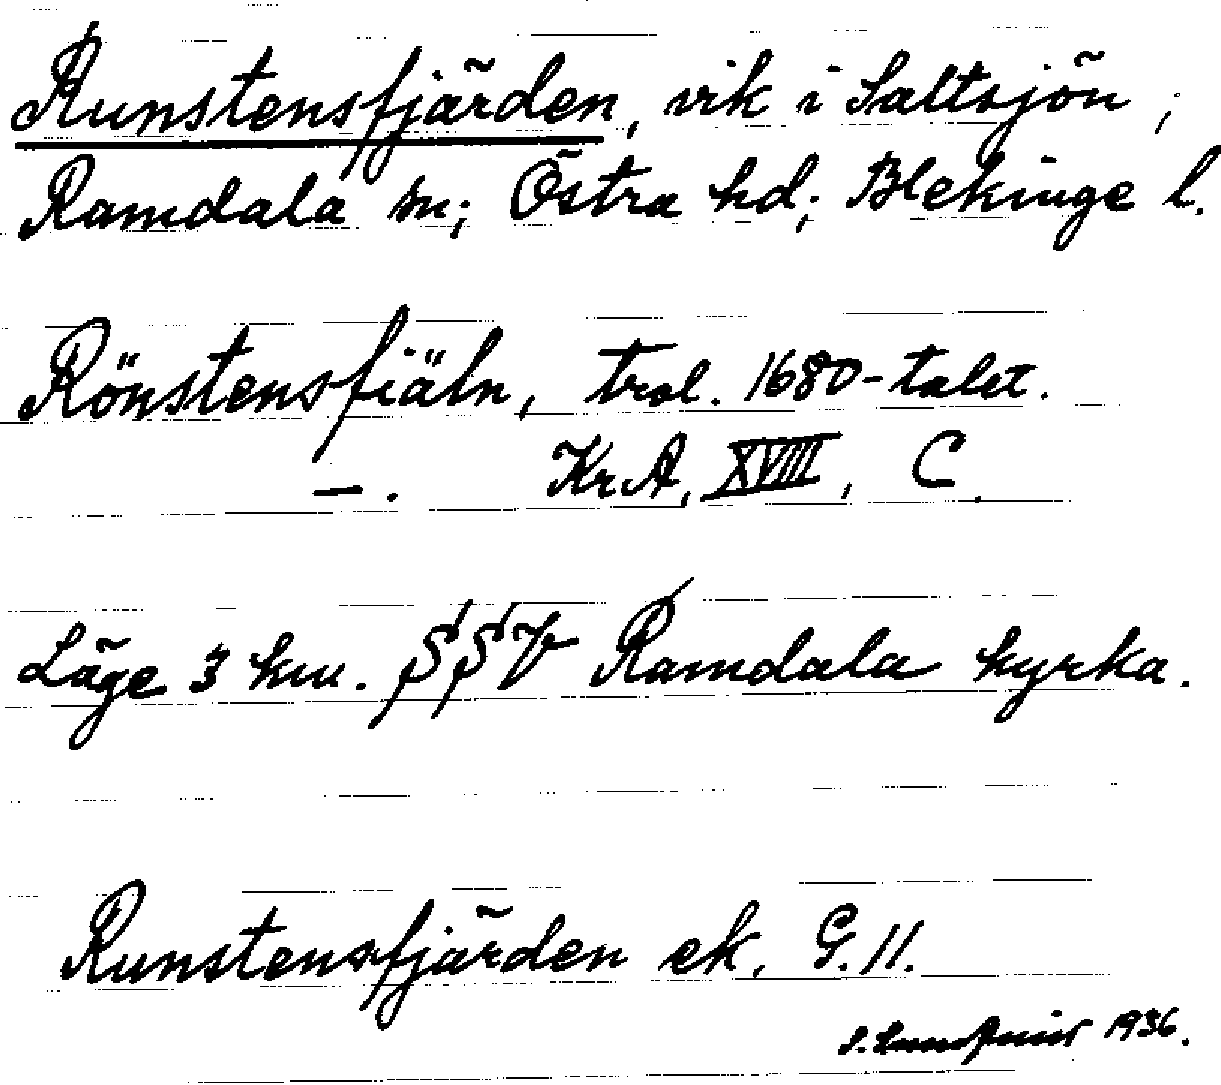 Runstensfjärden, vik i Saltsjön;
Ramdala sn; Östra hd; Blekinge l.
Rönstensfiäln, trol. 1680-talet.
—. KrA, XVIII, C.
Läge 3 km. SSV Ramdala kyrka.
Runstensfjärden ek. G. 11.
1936.